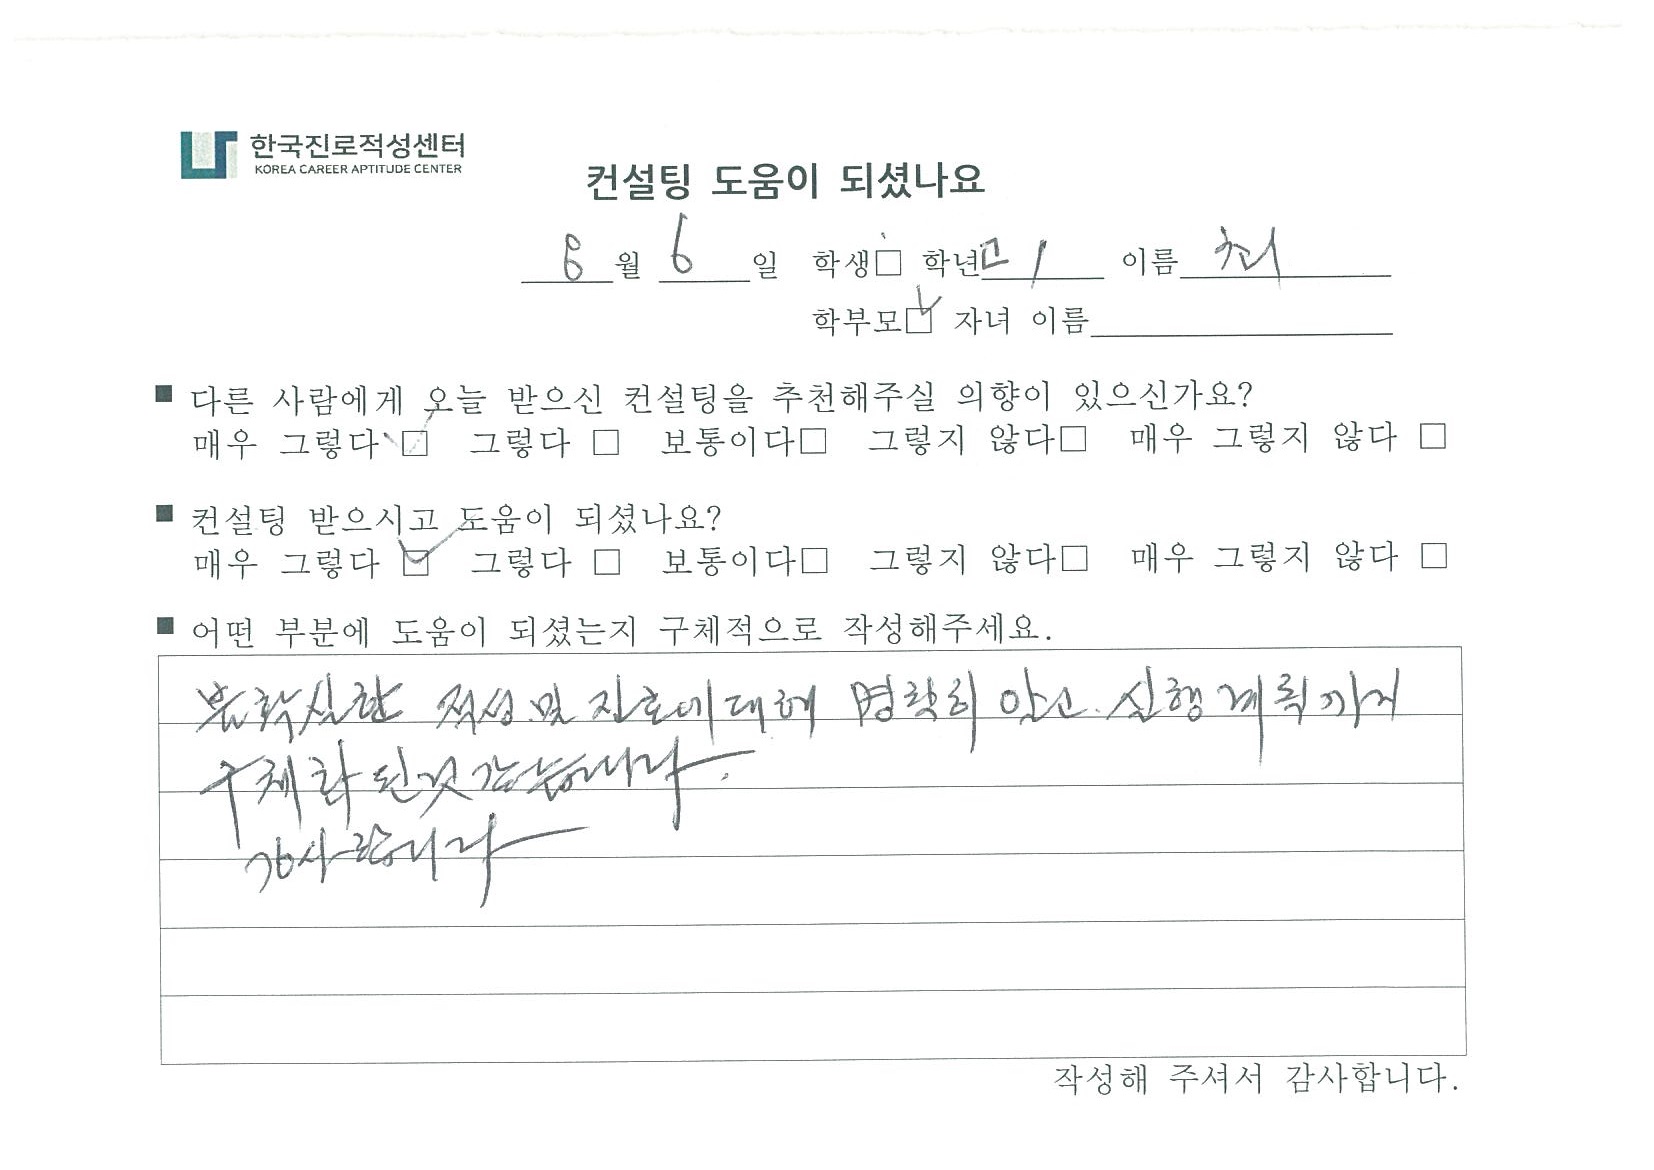 한국진로적성센터
KOREA CAREER APTITUDE CENTER
컨설팅 도움이 되셨나요
6월 6일 학생□ 학년 고1 이름 최
학부모☑ 자녀 이름
■ 다른 사람에게 오늘 받으신 컨설팅을 추천해주실 의향이 있으신가요?
매우 그렇다 ☑ 그렇다 □ 보통이다□ 그렇지 않다□ 매우 그렇지 않다 □
■ 컨설팅 받으시고 도움이 되셨나요?
매우 그렇다 ☑ 그렇다 □ 보통이다□ 그렇지 않다□ 매우 그렇지 않다 □
■ 어떤 부분에 도움이 되셨는지 구체적으로 작성해주세요.
불확실한 적성 및 진로에 대해 명확히 알고. 실행 계획까지
구체화 된것 같습니다.
감사합니다
작성해 주셔서 감사합니다.